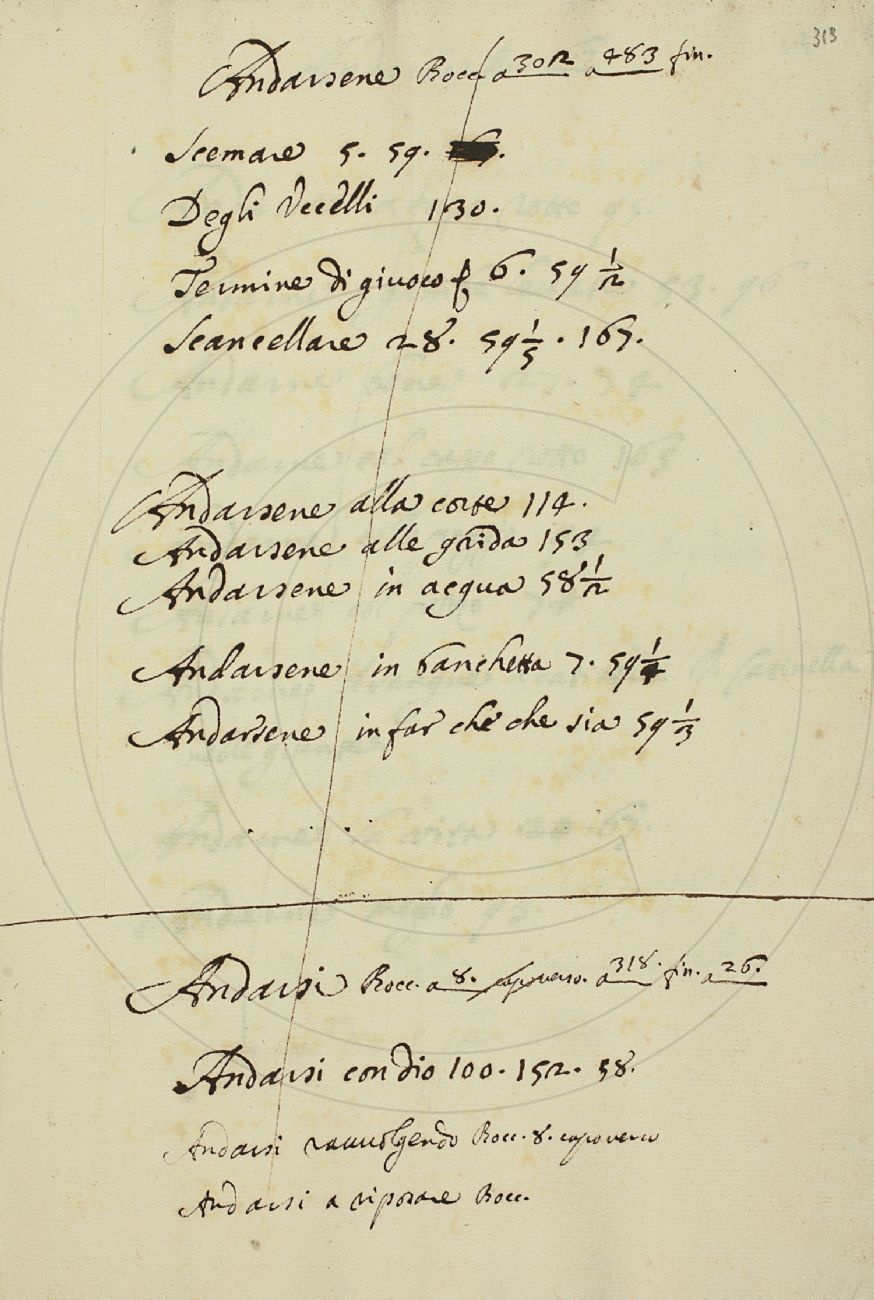 313
Andarsene Rocc. a 302 a 483 fin.
Scemare 5. 59.
Degli Vccelli 130.
Termine di giuoco 6. 59 1/2
Scancellare 28. 59 1/5 . 167.
Andarsene alla corte 114.
Andarsene alle grida 153
Andarsene in acqua 58 1/2
Andarsene in banchetta 7. 59 1/4
Andarsene in far che che sia 59 1/3
Andarsi Rocc. a 8. capouerso. a 318. fin. a 26.
Andarsi con dio 100. 152. 58.
Andarsi rauuolgendo Rocc. 8. capouerso
Andarsi a riposare Rocc.